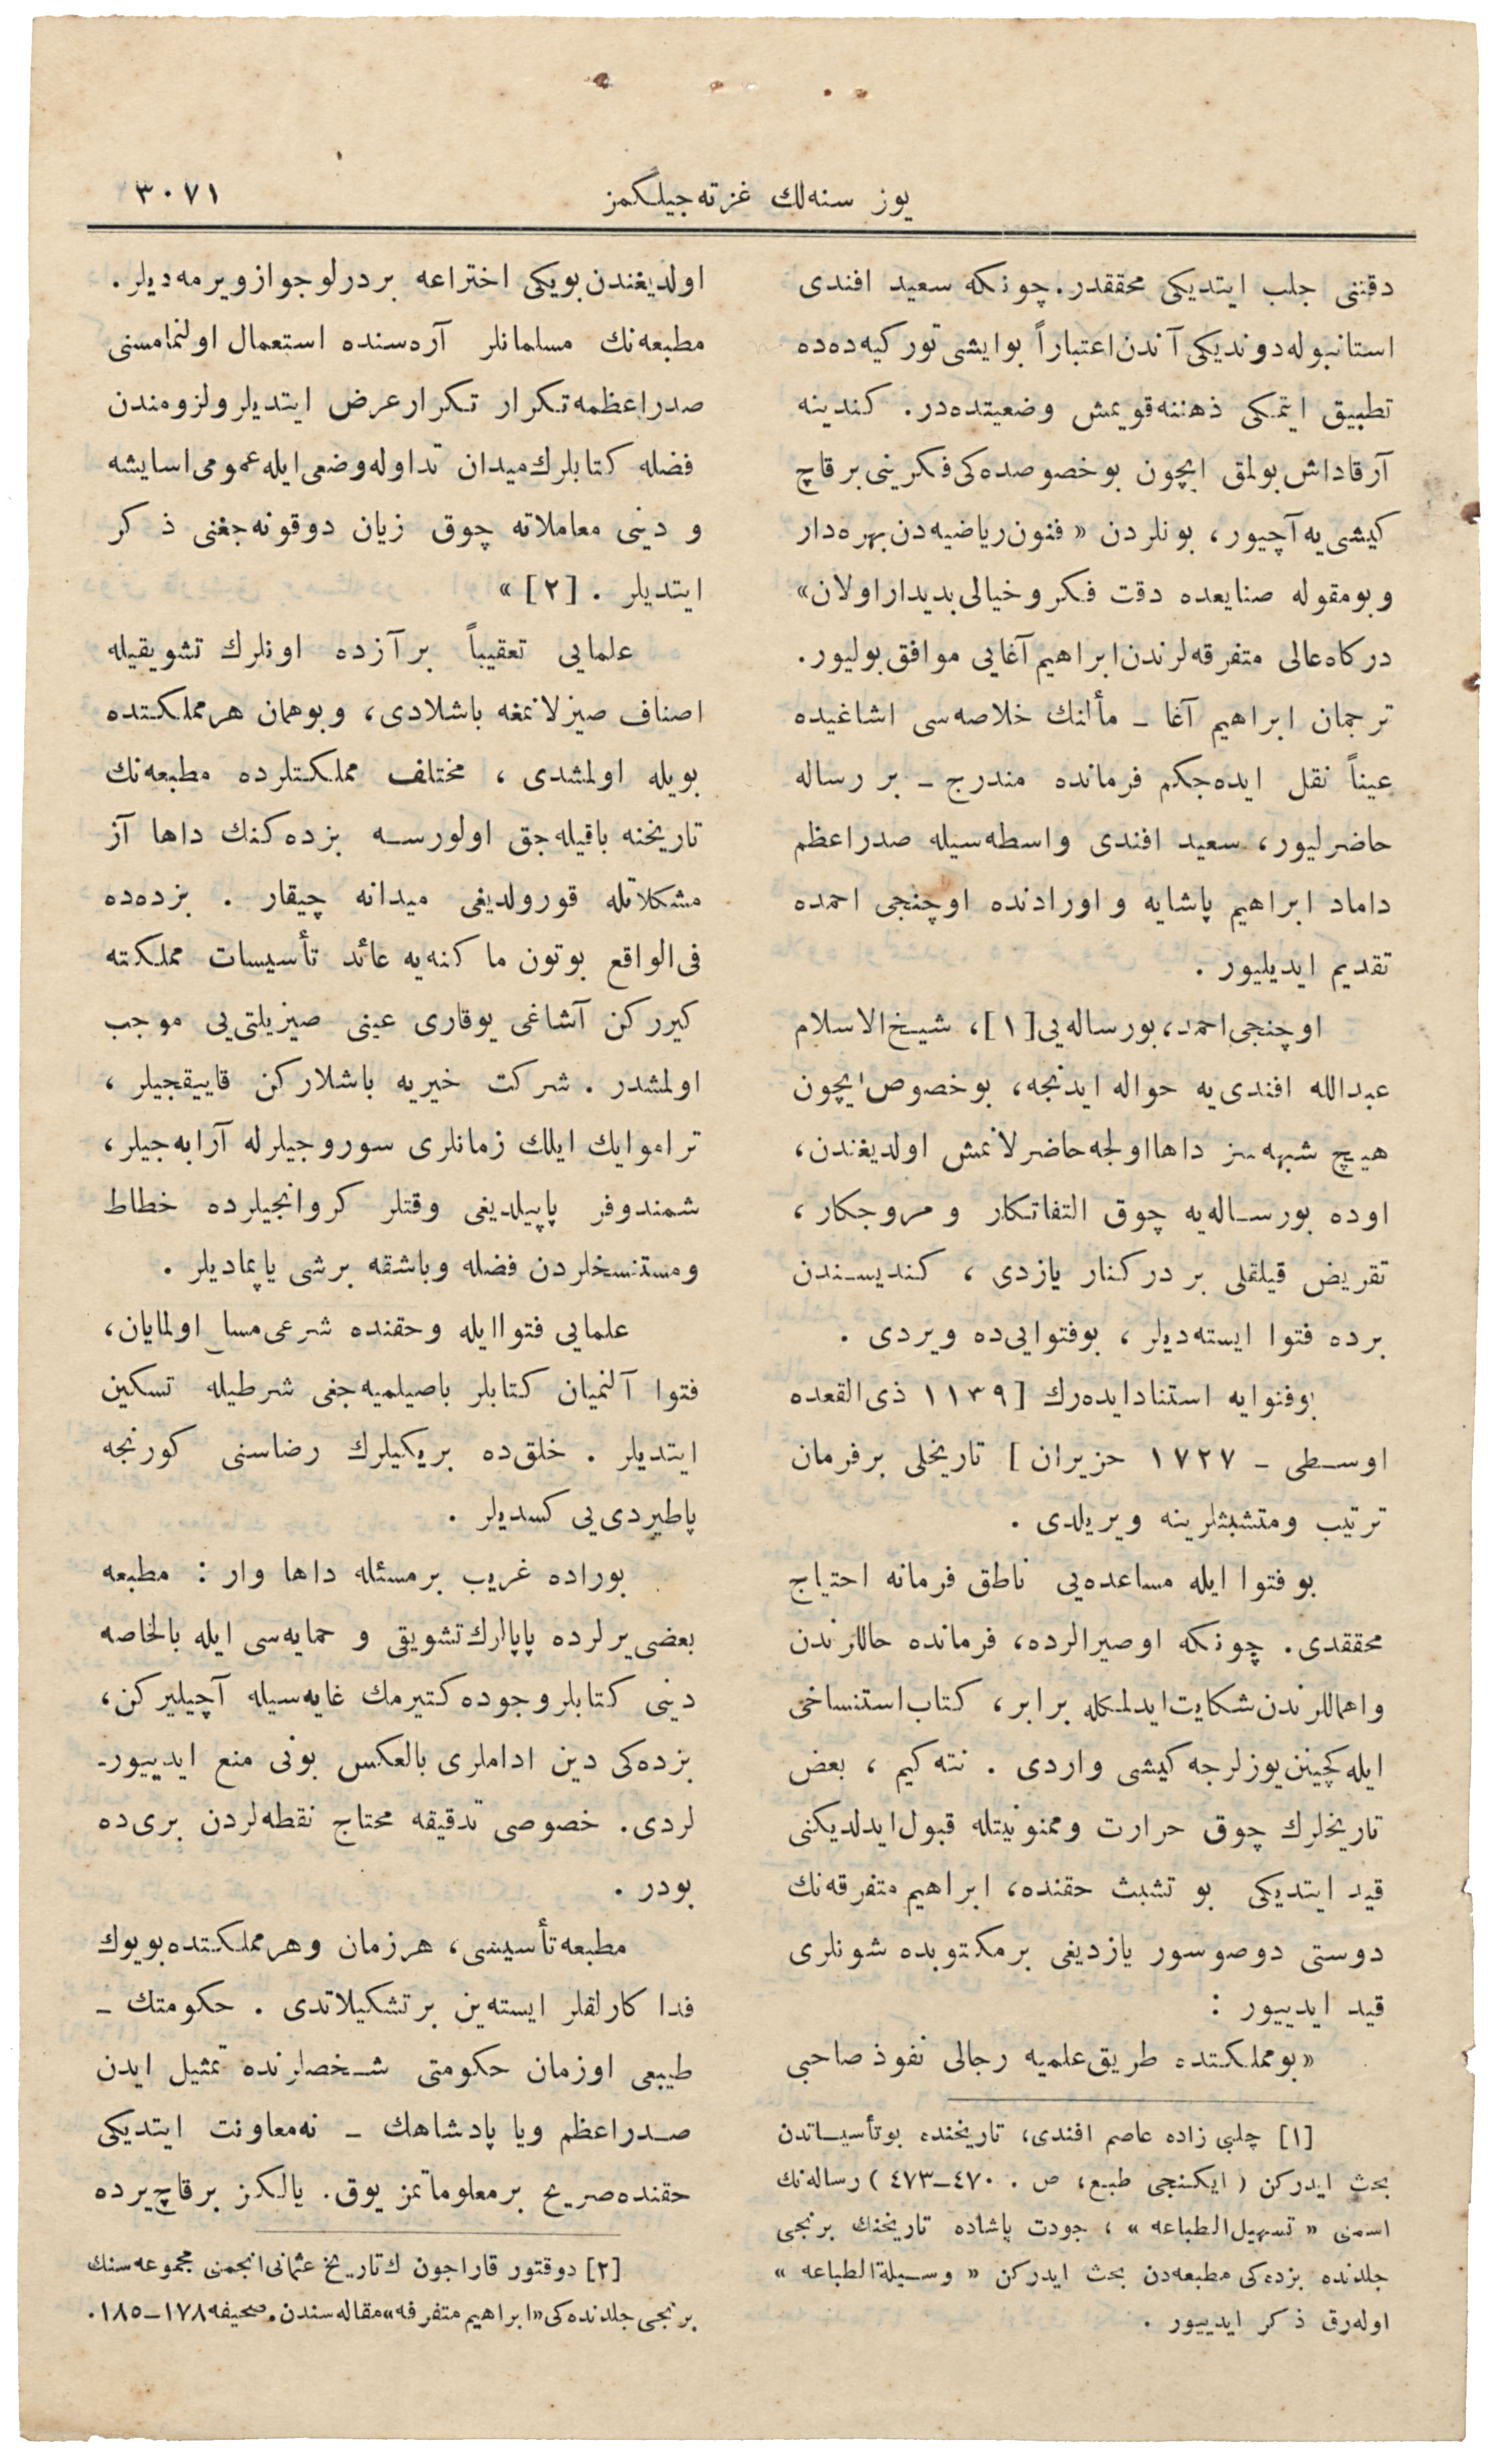 يوز سنه‌لك غزته‌جيلكمز
٣٠٧١
دقتنى جلب ايتديكى محققدر. چونكه سعيد افندى
استانبوله دونديكى آندن اعتباراً بوايشى توركيه‌ده‌ده
تطبيق ايتمكى ذهننه قويمش وضعيتده‌در. كندينه
آرقاداش بولمق ايچون بوخصوصده‌كى فكرينى برقاچ
كيشى‌يه آچيور، بونلردن «فنون رياضيه‌دن بهره‌دار
وبومقوله صنايعده دقت فكر وخيالى بديدار اولان»
دركاه عالى متفرقه‌لرندن ابراهيم آغايى موافق بوليور.
ترجمان ابراهيم آغا ـ مألنك خلاصه‌سى اشاغيده
عيناً نقل ايده‌جكم فرمانده مندرج ـ بر رساله
حاضرليور، سعيد افندى واسطه‌سيله صدراعظم
داماد ابراهيم پاشايه و اورادنده اوچنجى احمده
تقديم ايديليور .
اوچنجى احمد، بورساله‌يى [١]، شيخ‌الاسلام
عبدالله افندى‌يه حواله ايدنجه، بوخصوص ايچون
هيچ شبهه‌سز داها اولجه حاضرلانمش اولديغندن،
اوده بورساله‌يه چوق التفاتكار و مروجكار،
تقريض قيلقلى بر دركنار يازدى ، كنديسندن
برده فتوا ايسته‌ديلر ، بوفتوايى‌ده ويردى .
بوفتوايه استناد ايده‌رك [ ١١٣٩ ذى‌القعده
اوسطى ـ ١٧٢٧ حزيران ] تاريخلى برفرمان
ترتيب ومتشبثلرينه ويريلدى .
بوفتوا ايله مساعده‌يى ناطق فرمانه احتياج
محققدى. چونكه اوصيرالرده، فرمانده حاللرندن
واهماللرندن شكايت ايدلمكله برابر، كتاب استنساخى
ايله كچينن يوزلرجه كيشى واردى . نته‌كيم ، بعض
تاريخلرك چوق حرارت وممنونيتله قبول ايدلديكنى
قيد ايتديكى بو تشبث حقنده، ابراهيم متفرقه‌نك
دوستى دوصوسور يازديغى برمكتوبده شونلرى
قيد ايدييور :
«بومملكتده طريق علميه رجالى نفوذ صاحبى
[١] چلبى زاده عاصم افندى، تاريخنده بوتأسيساتدن
بحث ايدركن (ايكنجى طبع، ص . ٤٧٠ـ٤٧٣) رساله‌نك
اسمنى «تسهيل الطباعه» ، جودت پاشاده تاريخنك برنجى
جلدنده بزده‌كى مطبعه‌دن بحث ايدركن «وسيلة الطباعه»
اوله‌رق ذكر ايدييور .
اولديغندن بويكى اختراعه بردرلو جواز ويرمه‌ديلر.
مطبعه‌نك مسلمانلر آره‌سنده استعمال اولنمامسنى
صدراعظمه تكرار تكرار عرض ايتديلر ولزومندن
فضله كتابلرك ميدان تداوله وضعى ايله عمومى اسايشه
و دينى معاملاته چوق زيان دوقونه‌جغنى ذكر
ايتديلر . [٢] »
علمايى تعقيباً برآزده اونلرك تشويقيله
اصناف صيزلانمغه باشلادى، وبوهمان هرمملكتده
بويله اولمشدى ، مختلف مملكتلرده مطبعه‌نك
تاريخنه باقيله‌جق اولورسه بزده‌كنك داها آز
مشكلاتله قورولديغى ميدانه چيقار . بزده‌ده
فى‌الواقع بوتون ماكنه‌يه عائد تأسيسات مملكته
كيرركن آشاغى يوقارى عينى صيزيلتى‌يى موجب
اولمشدر . شركت خيريه باشلاركن قاييقجيلر ،
تراموايك ايلك زمانلرى سوروجيلرله آرابه‌جيلر،
شمندوفر ياپيلديغى وقتلر كروانجيلرده خطاط
ومستنسخلردن فضله وباشقه برشى ياپماديلر .
علمايى فتوا ايله وحقنده شرعى مسا اولمايان،
فتوا آلنميان كتابلر باصيلميه‌جغى شرطيله تسكين
ايتديلر . خلق‌ده بريكيلرك رضاسنى كورنجه
پاطيردى‌يى كسديلر .
بوراده غريب برمسئله داها وار : مطبعه
بعضى يرلرده پاپالرك تشويقى و حمايه‌سى ايله بالخاصه
دينى كتابلر وجوده كتيرمك غايه‌سيله آچيليركن،
بزده‌كى دين اداملرى بالعكس بونى منع ايدييور-
لردى. خصوصى تدقيقه محتاج نقطه‌لردن برى‌ده
بودر .
مطبعه تأسيسى، هرزمان وهرمملكتده بويوك
فداكارلقلر ايسته‌ين برتشكيلاتدى . حكومتك ـ
طبيعى اوزمان حكومتى شخصلرنده تمثيل ايدن
صدراعظم ويا پادشاهك ـ نه‌معاونت ايتديكى
حقنده صريح برمعلوماتمز يوق. يالكز برقاچ يرده
[٢] دوقتور قاراجون ك تاريخ عثمانى انجمنى مجموعه‌سنك
برنجى جلدنده‌كى «ابراهيم متفرقه» مقاله‌سندن. صحيفه ١٧٨ـ١٨٥.